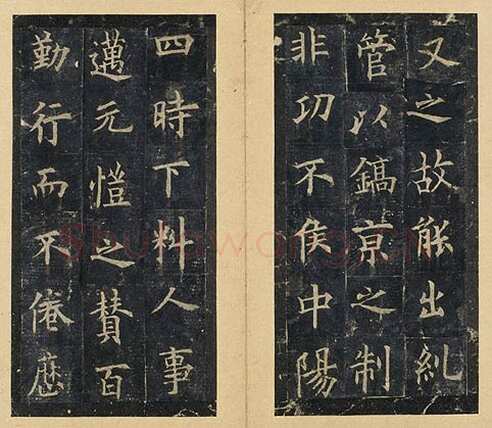 又之故能出糺
管以鎬京之制
非㓛不侯中陽
四時下料人事
邁元愷之賛百
勤行而不倦厯